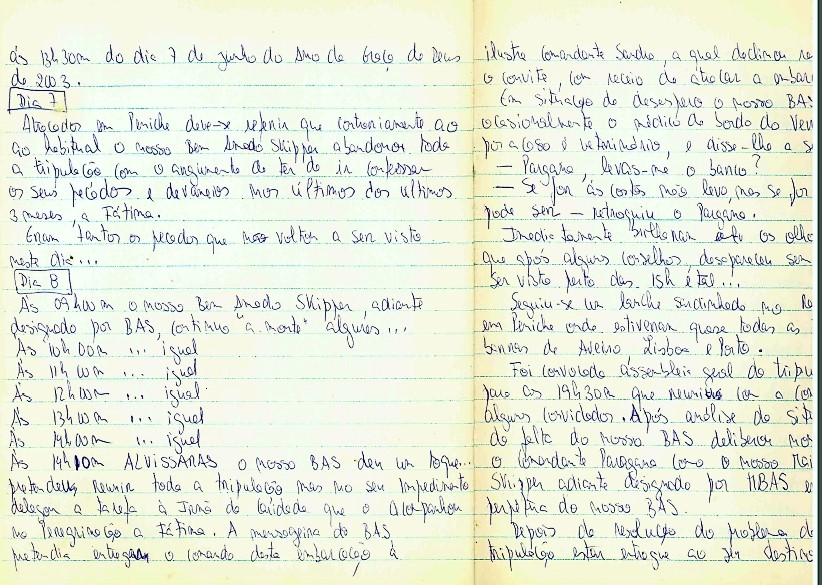 às 13h30m do dia 7 de Junho do Ano da Graça de Deus
de 2003.
Dia 7
Atracados em Peniche deve-se referir que contrariamente ao
ao habitual o nosso Bem Amado Skipper abandonou toda
a tripulação com o argumento de ter de ir confessar
os seus pecados e devaneios nos últimos dos ultimos
3 meses, a Fátima.
Eram tantos os pecados que não voltou a ser visto
neste dia...
Dia 8
Às 09h00m o nosso Bem Amado Skipper, adiante
designado por BAS, continua "a monte" algures...
Às 10h00m ... igual
Às 11h00m ... igual
Às 12h00m ... igual
Às 13h00m ... igual
Às 14h00m ... igual
Às 14h10m ALVISSARAS o nosso BAS deu um toque...
pretendeu reunir toda a tripulação mas no seu impedimento
delegou a tarefa à Irmã da Caridade que o acompanhou
na Peregrinação a Fátima. A mensageira do BAS
pretendia entregar o comando desta embarcação à
ilustre Comandante Sandra, a qual declinou
o convite, com receio de atracar a
Em situação de desespero o nosso BAS
ocasionalmente o médico de bordo do
por acaso é veterinário, e disse-lhe a
— Pargana, levas-me o barco?
— Se for às costas não levo, mas se for
pode ser — retroquiu o Pargana.
Imediatamente brilharam até os
que após alguns conselhos, desapareceu sem
ser visto perto das 15h e tal...
Seguiu-se um lanche ajardinado no
em Peniche onde estiveram quase todas as
barras de Aveiro, Lisboa e Porto.
Foi convocada assembleia geral da
para as 19h30m que reuniu com a
alguns convidados. Após análise da
da falta do nosso BAS deliberou
o Comandante Paragana como o nosso
Skipper adiante designado por MBAS
perpétua do nosso BAS.
Depois da resolução do problema
tripulação estar entregue ao seu